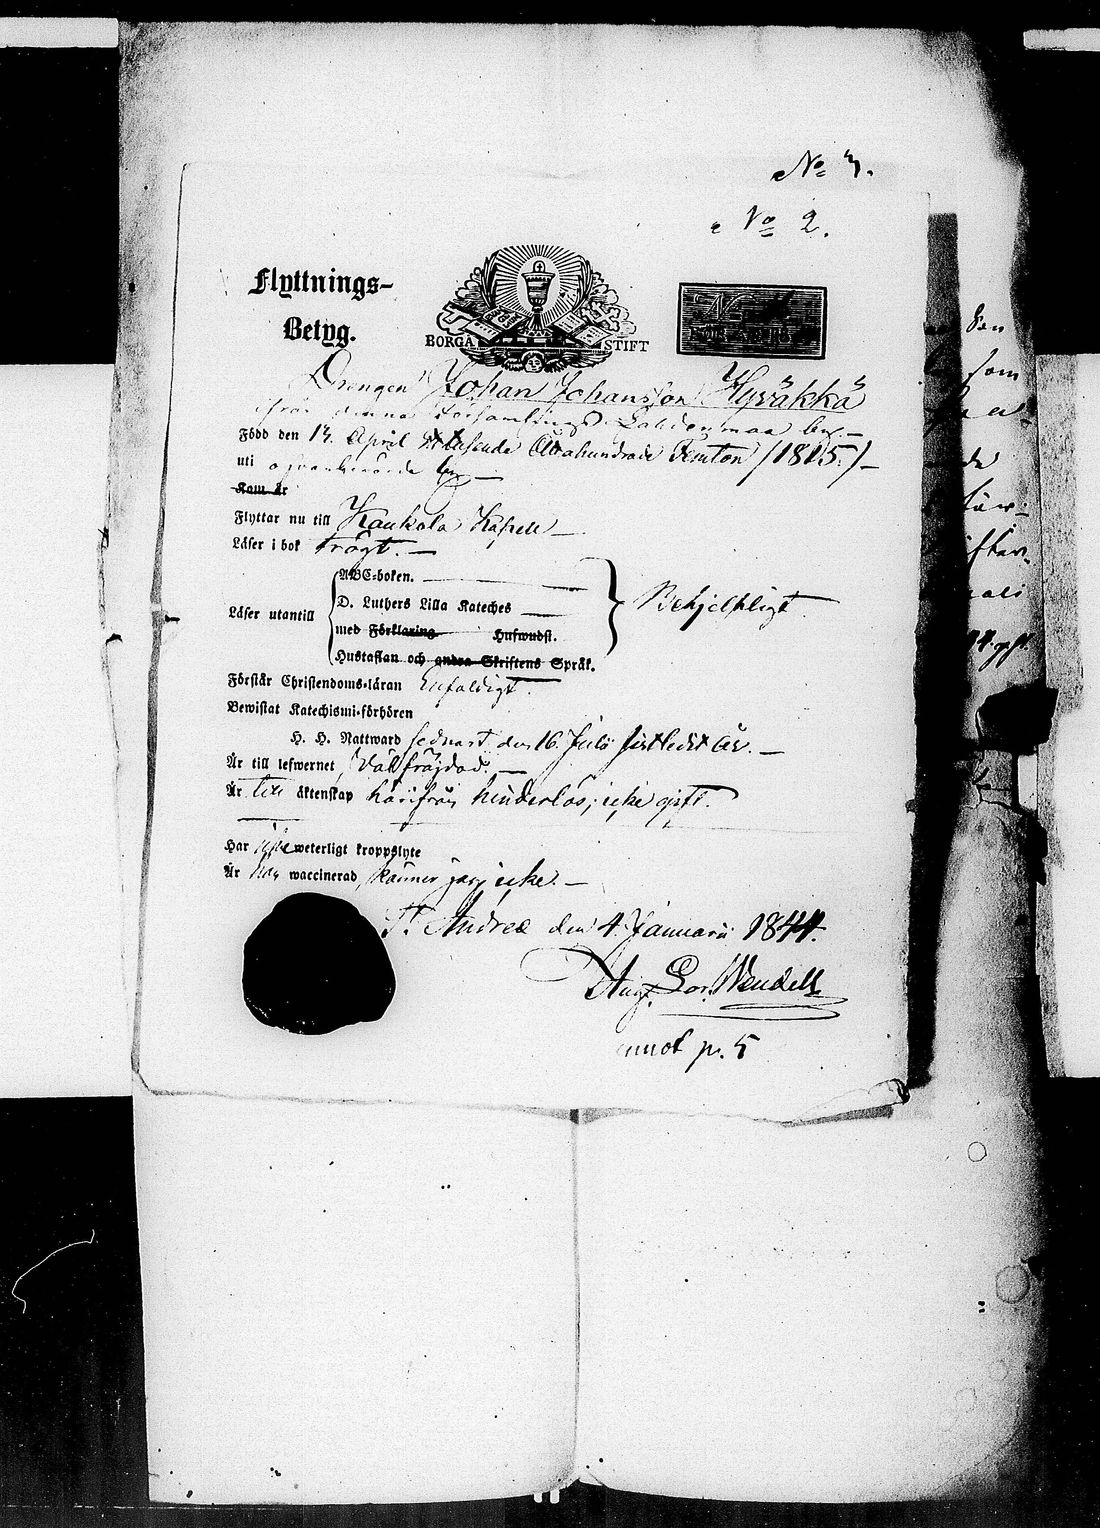 No 3.
No 2.
Flyttnings-
Betyg.
BORGÅ STIFT
Drengen Johan Johansson Hyväkkä
ifrån denna Församlings by.
Född den 13. April Ett tusende Åttahundrade Femton /1815./
uti ofvanberörde by
Kom år
Flyttar nu till Kaukola Kapell
Läser i bok trögt.
ABC-boken.
D. Luthers Lilla Kateches
Läser utantill
med Förklaring Hufwudst.
Hustaflan och andra Skriftens Språk.
Behjelpligt
Förstår Christendoms-läran Enfaldigt.
Bewistat Katechismi-förhören
H. H. Nattward sednast den 16. Julii sistledit år.
Är till lefwernet Välfräjdad.
Är till äktenskap härifrån hinderlös, icke gift.
Har icke weterligt kroppslyte
Är waccinerad, känner jag icke.
St. Andreæ den 4. Januarii 1844.
Aug. Lor. Wendell
annot p. 5